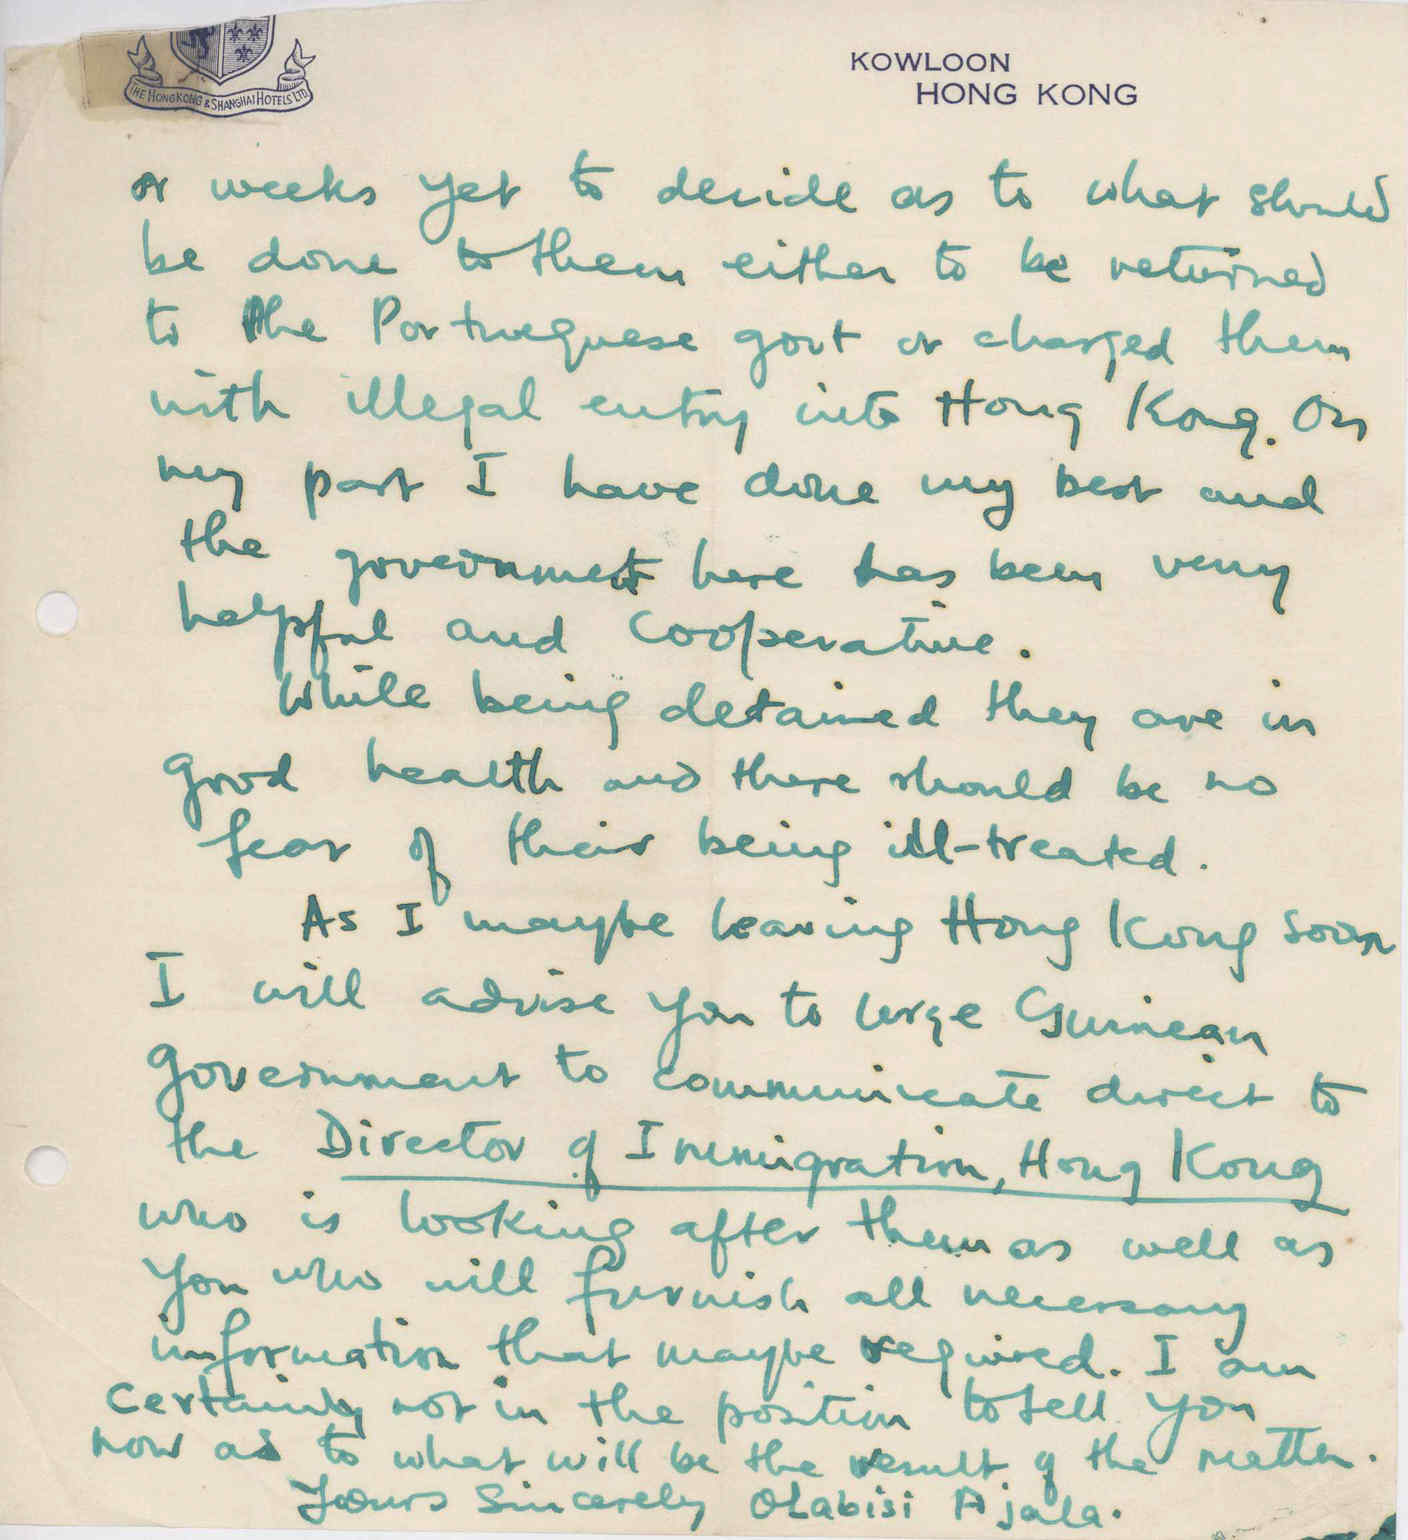 THE HONGKONG & SHANGHAI HOTELS LTD.
KOWLOON
HONG KONG
or weeks yet to decide as to what should
be done to them either to be returned
to the Portueguese govt or charged them
with illegal entry into Hong Kong. On
my part I have done my best and
the government here has been very
helpful and cooperative.
While being detained they are in
good health and there should be no
fear of their being ill-treated.
As I maybe leaving Hong Kong soon
I will advise you to urge Guinean
government to communicate direct to
the Director of Immigration, Hong Kong
who is looking after them as well as
you who will furnish all necessary
information that maybe required. I am
certainly not in the position to tell you
now as to what will be the result of the matter.
Yours Sincerely Olabisi Ajala.